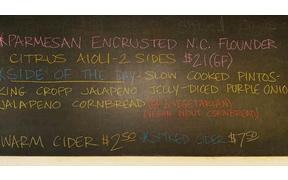 *PARMESAN ENCRUSTED N.C. FLOUNDER
CITRUS AIOLI-2 SIDES $21(GF)
*SIDE OF THE DAY-SLOW COOKED PINTOS-
KING CROPP JALAPENO JELLY-DICED PURPLE ONION
JALAPENO CORNBREAD (GF/VEGETARIAN)
(VEGAN W/OUT CORNBREAD)
WARM CIDER $2.50 *SPIKED CIDER $7.50